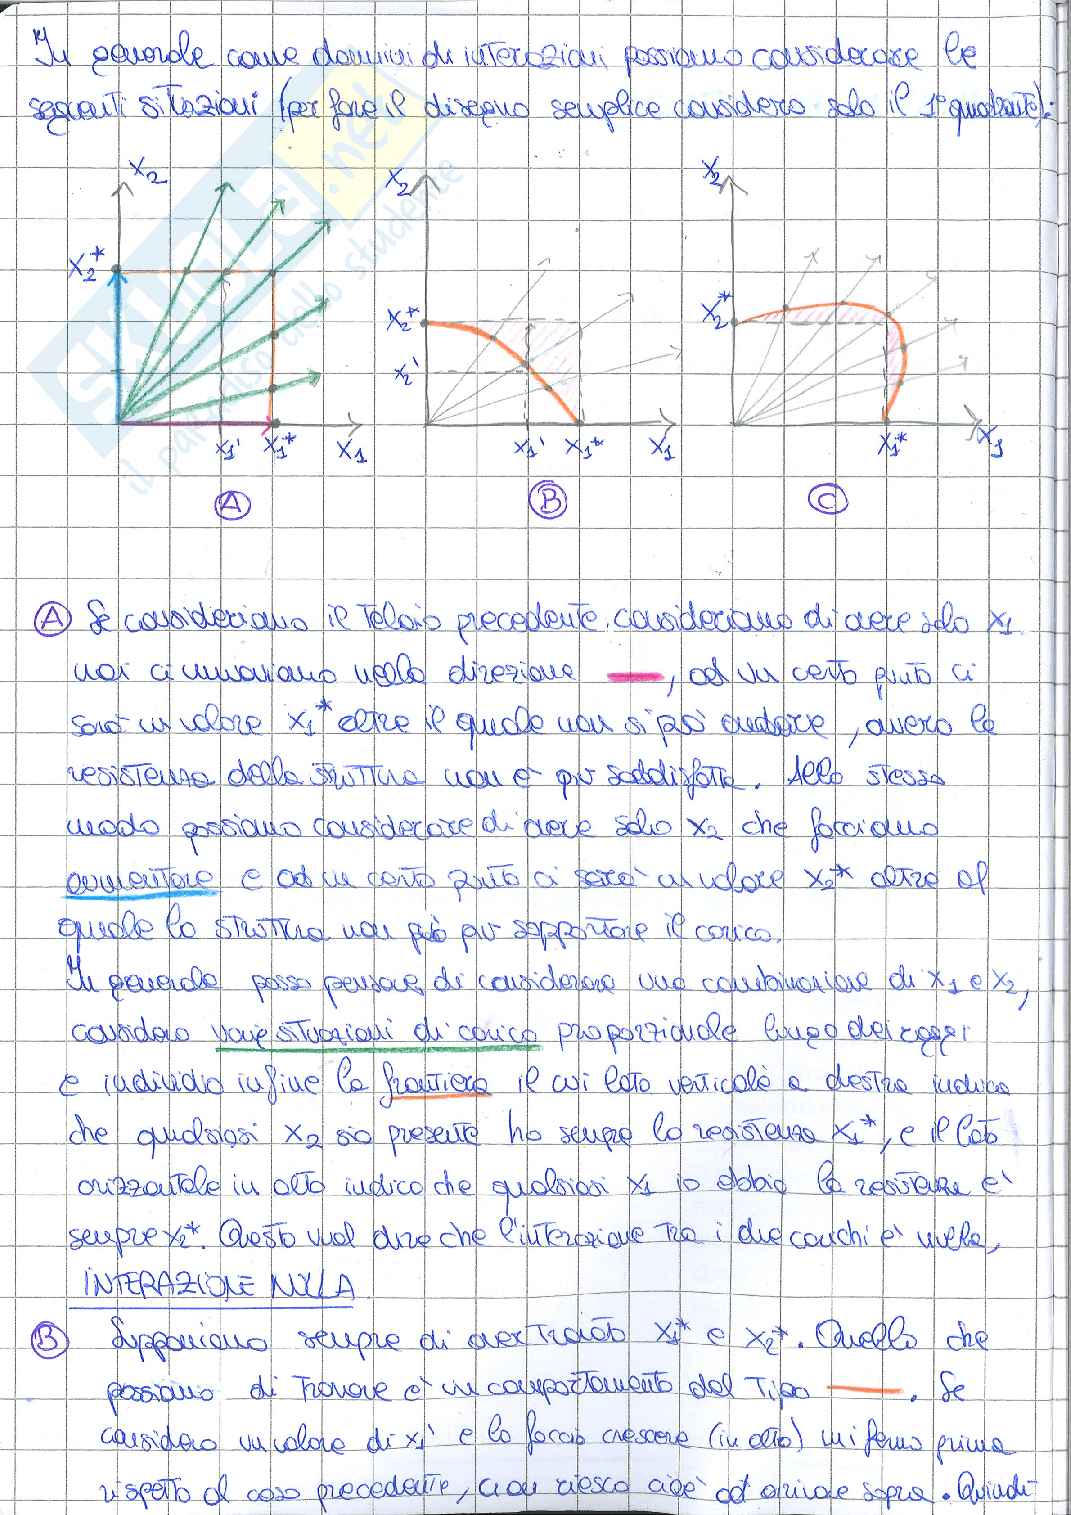 In generale come domini di interazioni possiamo considerare le
seguenti situazioni (per fare il disegno semplice considero solo il 1° quadrante):
X2 X2 X2
X2* X2* X2*
X2'
X1' X1* X1 X1' X1* X1 X1* X1
A B C
SKUOLA.net
il paradiso dello studente
A Se consideriamo il telaio precedente, consideriamo di avere solo X1
noi ci muoviamo nella direzione , ad un certo punto ci
sarà un valore X1* oltre il quale non si può andare, ovvero la
resistenza della struttura non è più soddisfatta. Allo stesso
modo possiamo considerare di avere solo X2 che facciamo
aumentare e ad un certo punto ci sarà un valore X2* oltre al
quale la struttura non può più sopportare il carico.
In generale posso pensare di considerare una combinazione di X1 e X2,
considero varie situazioni di carico proporzionale lungo dei raggi
e individuo infine la frontiera il cui lato verticale a destra indica
che qualsiasi X2 sia presente ho sempre la resistenza X1*, e il lato
orizzontale in alto indica che qualsiasi X1 io abbia la resistenza è
sempre X2*. Questo vuol dire che l'interazione tra i due carichi è nulla,
INTERAZIONE NULLA
B Supponiamo sempre di aver trovato X1* e X2*. Quello che
possiamo di trovare è un comportamento del tipo . Se
considero un valore di X1' e lo faccio crescere (in alto) mi fermo prima
rispetto al caso precedente, non riesco cioè ad arrivare sopra. Quindi